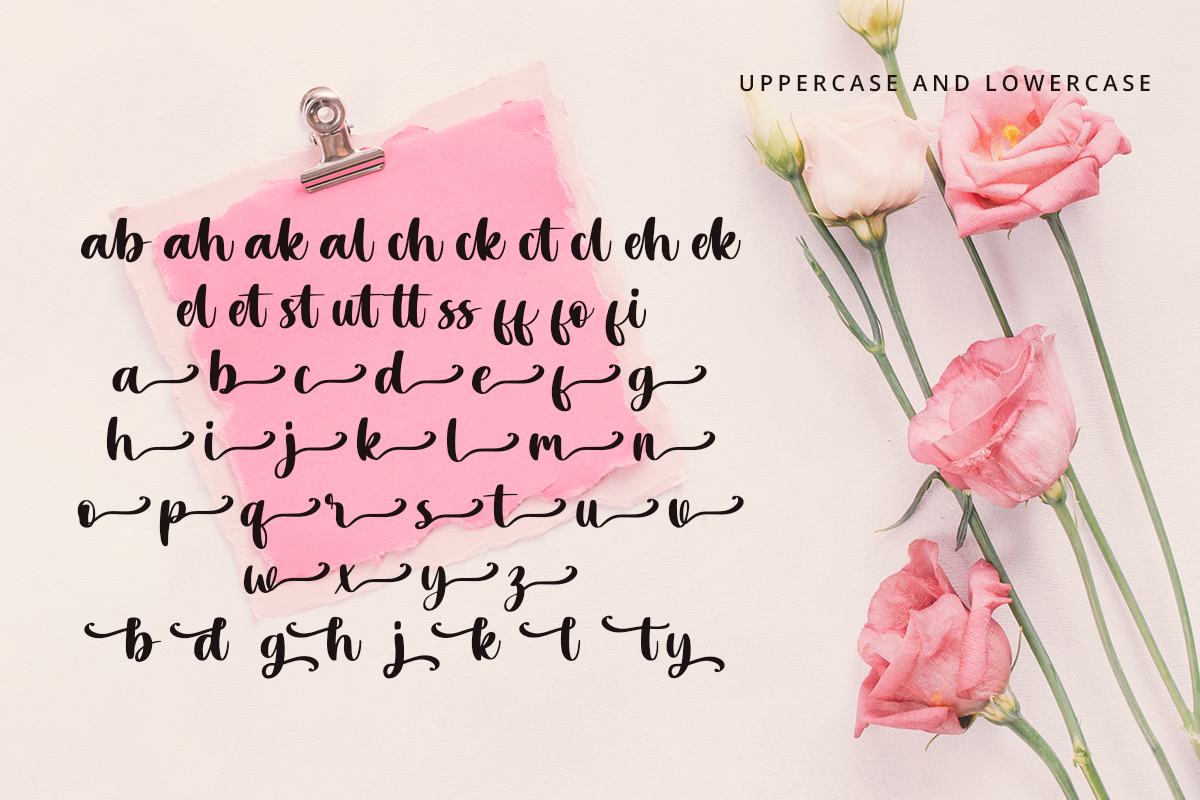 UPPERCASE AND LOWERCASE
ab ah ak al ch ck ct cl eh ek
el et st ut tt ss ff fo fi
a b c d e f g
h i j k l m n
o p q r s t u v
w x y z
b d g h j k l t y